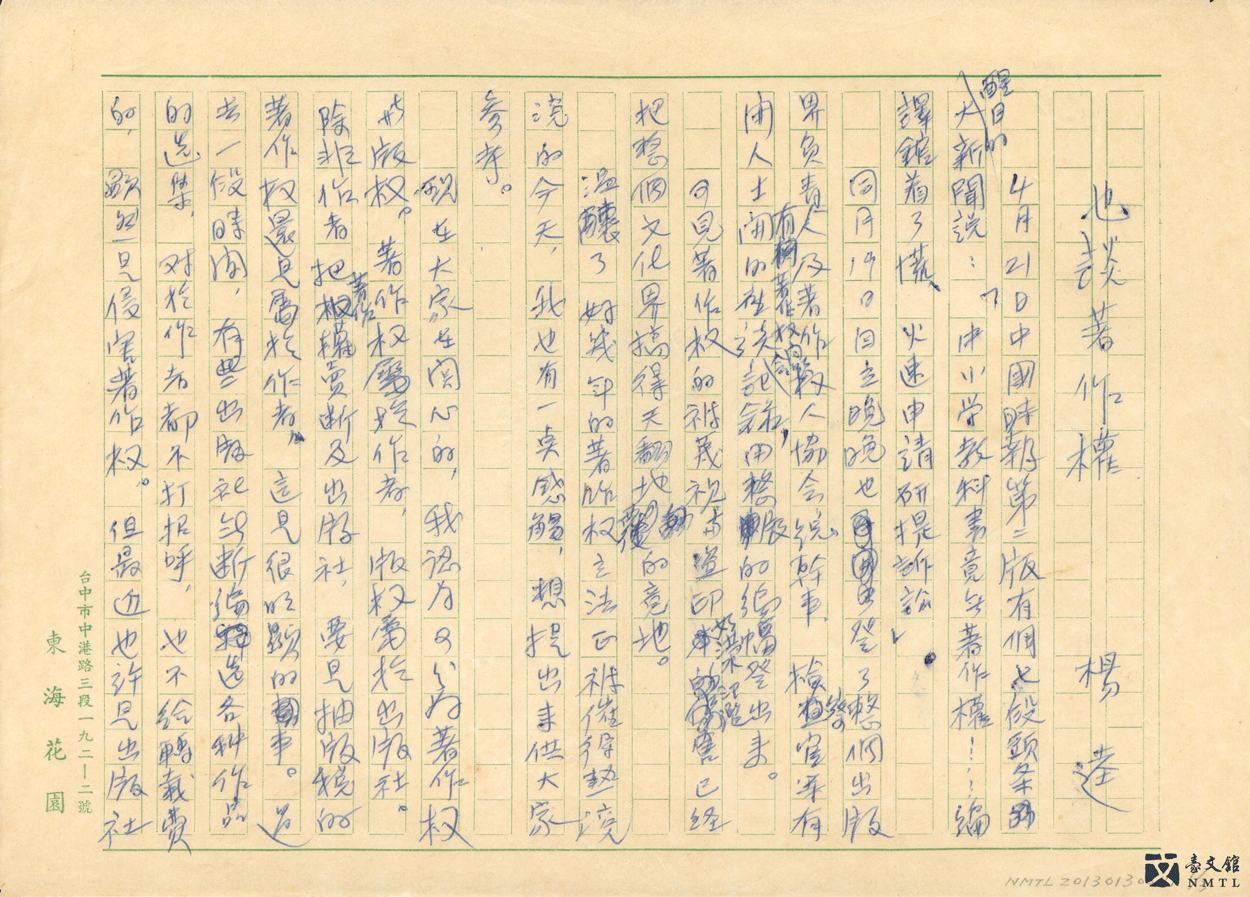 也談著作權　楊逵
4月21日中國時報第二版有個七段頭条
醒目的大新聞說：「中小学教科書竟無著作權！！編
譯館着了慌，火速申請研提訴訟
同月19日自立晚晚也登了整個出版
界負責人及著作权人協会統幹事、檢警官等有
関人士開的有関著作权的座談記錄，用整版的編幅登出來。
可見著作权的被蔑視与盜印如洪水氾濫已経
把整個文化界搞得天翻地覆的意地。
溫釀了好幾年的著作权立法正被催得熱滾
滾的今天，我也有一点感觸，想提出来供大家
参考。
現在大家在関心的，我認为可分为著作权
与版权。著作权屬於作者，版权屬於出版社。
除非作者把著作權賣断及出版社，要是抽版税的
著作权還是屬於作者，這是很明顕的事。過
去一段時間，有些出版社無断編选各种作品
的选集，对於作者都不打招呼，也不給轉載費
的，顕然是侵害著作权。但最近也許是出版社
台中市中港路三段一九二—二號
東海花園
NMTL 2013013
臺文館
NMTL